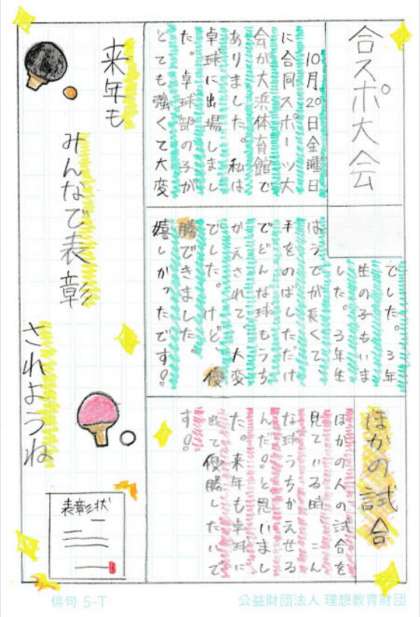 合スポ大会
10月20日金曜日
に合同スポーツ大
会が大浜体育館で
ありました。私は
卓球に出場しまし
た。卓球部の子が
とても強くて大変
でした。3年
生の子もいま
した。3年生
はうでが長くて、
手をのばしただけ
でどんな球もうち
かえされて、大変
でした。けど、優
勝できました。
嬉しかったです!!
ほかの試合
ほかの人の試合を
見ている時、こん
な球うちかえせる
んだ!!と思いまし
た。来年も卓球に
出て優勝したいで
す!!
来年も
みんなで表彰
されようね
表彰状
俳句 5-T
公益財団法人 理想教育財団